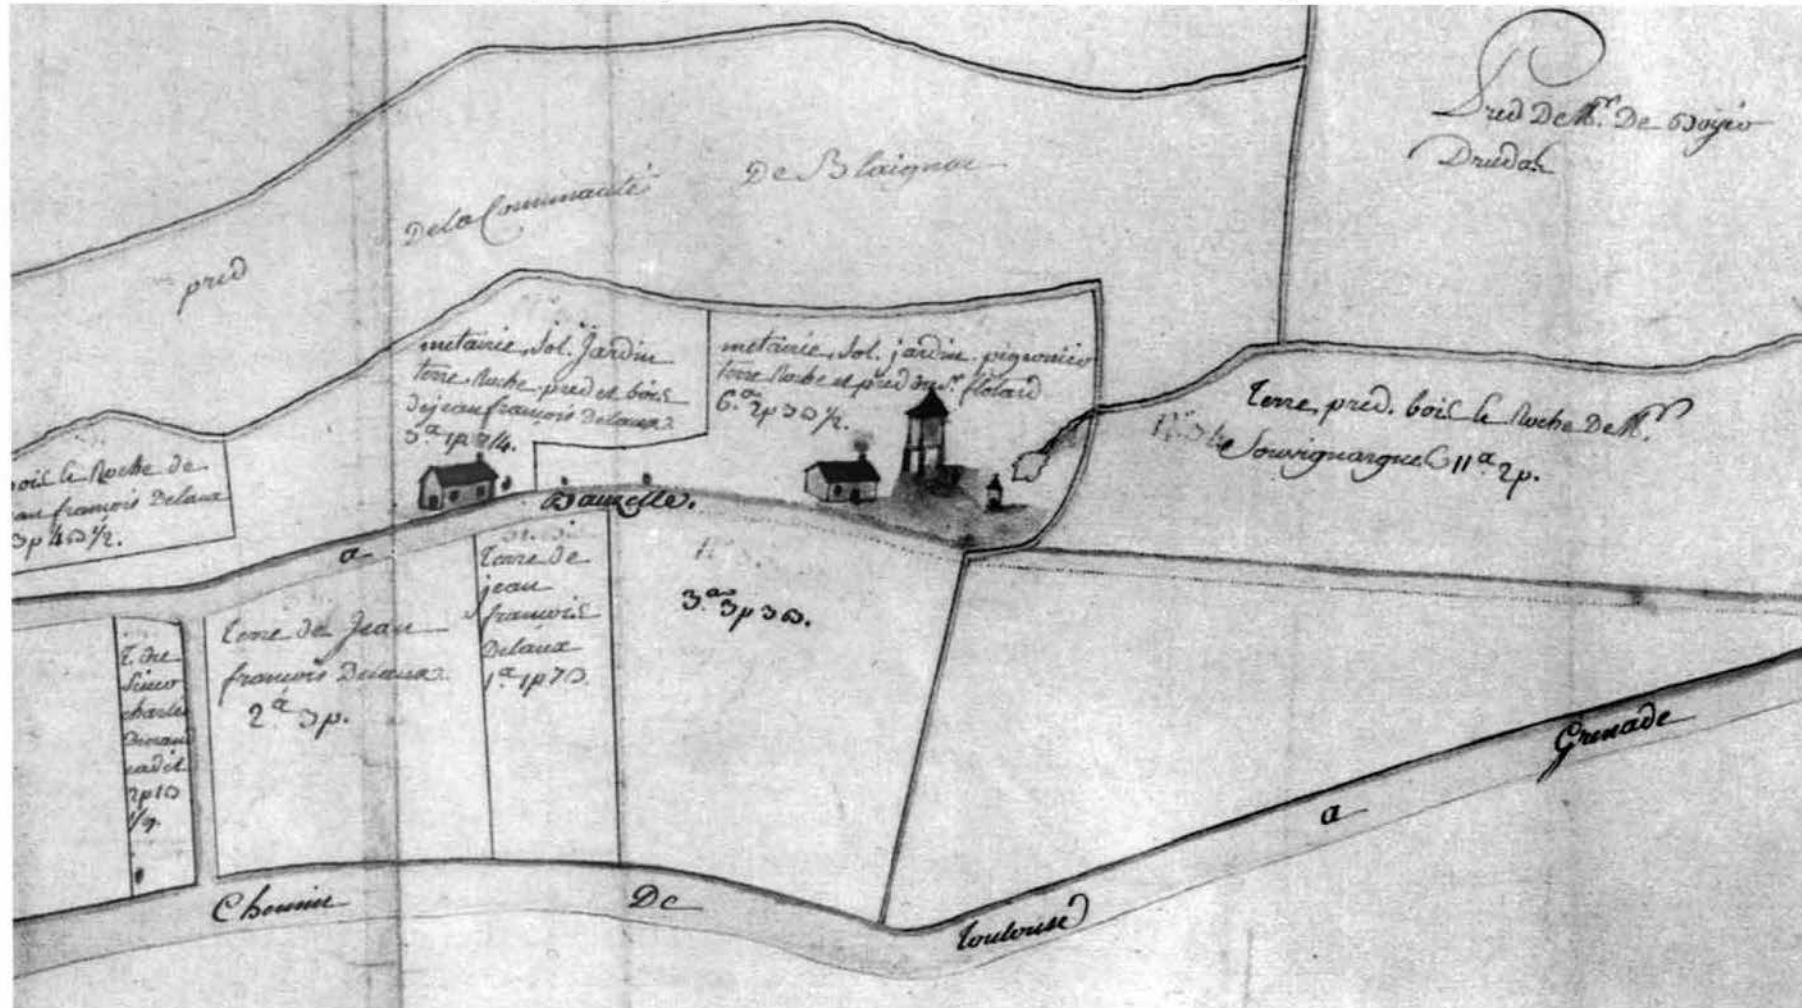 pred
De la Communauté
De Blaignac
Pred De Mr. De
Drudas
metairie, sol. Jardin
terre, Roche. pred et bois
De jean françois Delaux
3.a 1p 7 1/4.
metairie, sol. jardin. pigeonier
terre Roche et pred du Sr. flotard
6.a 2p 30 1/2.
Terre, pred. bois le Roche De Mr.
de Souvignargues 11a 2p.
bois le Roche de
jean françois Delaux
3p 40 1/2.
a
Dauzelle.
Terre de
jean
françois
Delaux
1.a 1p 70.
3.a 3p 30.
Terre de Jean
françois Delaux.
2.a 3p.
T. du
Sieur
charles
cadet
2p 10
1/2.
Chemin
De
Toulouse
a
Grenade